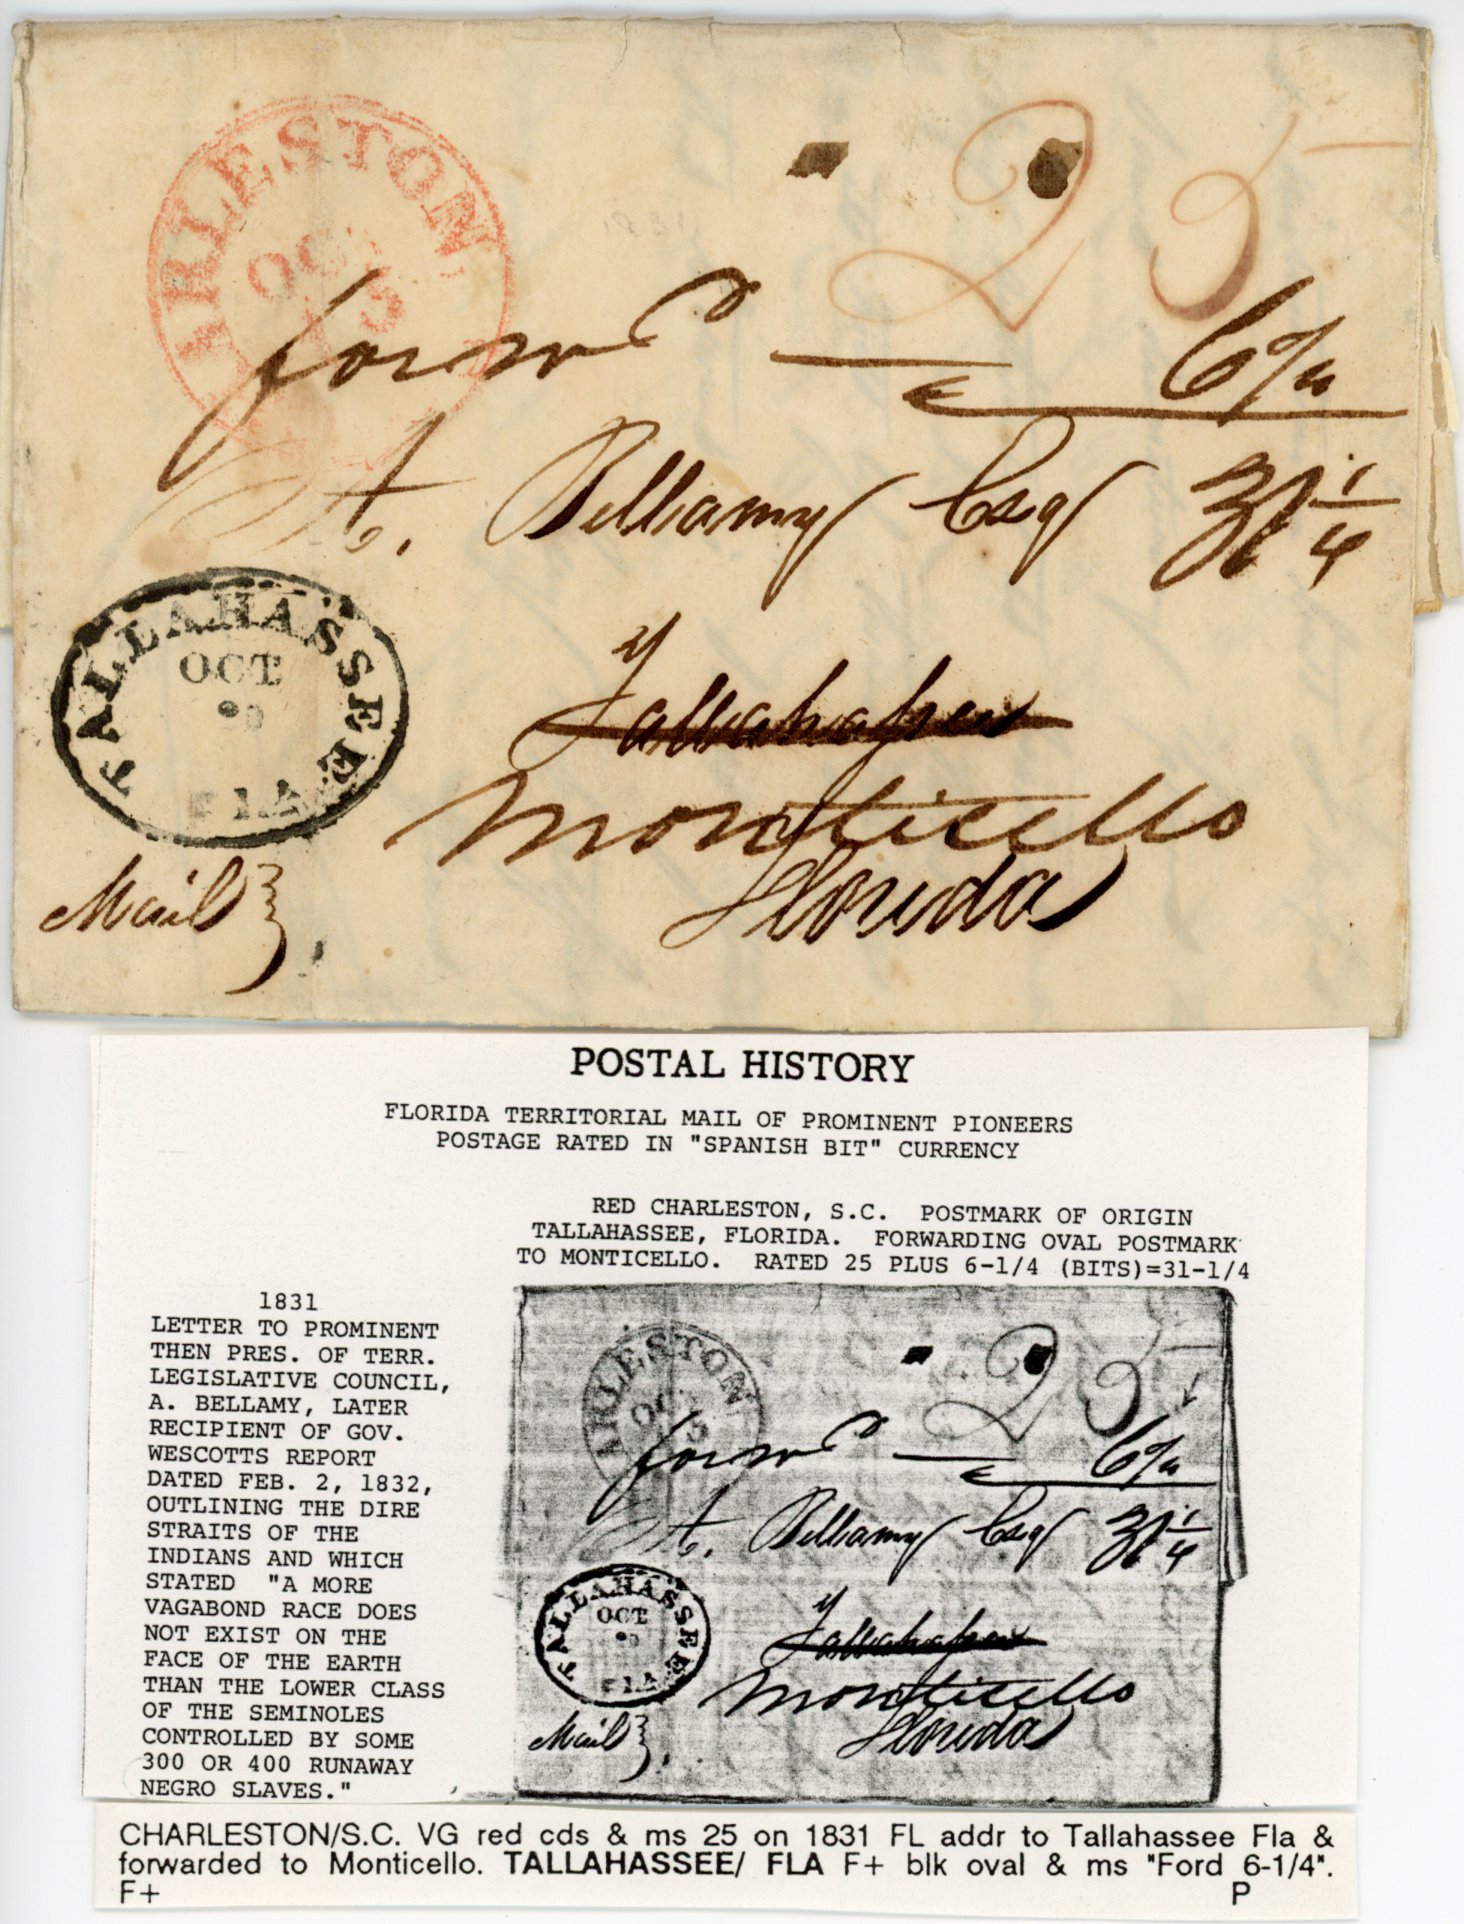 ARLESTON
OCT
25
forwd — 6¼
A. Bellamy Esq 31¼
TALLAHASSEE
OCT
FLA
Tallahassee
Monticello
Florida
Mail
POSTAL HISTORY
FLORIDA TERRITORIAL MAIL OF PROMINENT PIONEERS
POSTAGE RATED IN "SPANISH BIT" CURRENCY
RED CHARLESTON, S.C. POSTMARK OF ORIGIN
TALLAHASSEE, FLORIDA. FORWARDING OVAL POSTMARK
TO MONTICELLO. RATED 25 PLUS 6-1/4 (BITS)=31-1/4
1831
LETTER TO PROMINENT
THEN PRES. OF TERR.
LEGISLATIVE COUNCIL,
A. BELLAMY, LATER
RECIPIENT OF GOV.
WESCOTTS REPORT
DATED FEB. 2, 1832,
OUTLINING THE DIRE
STRAITS OF THE
INDIANS AND WHICH
STATED "A MORE
VAGABOND RACE DOES
NOT EXIST ON THE
FACE OF THE EARTH
THAN THE LOWER CLASS
OF THE SEMINOLES
CONTROLLED BY SOME
300 OR 400 RUNAWAY
NEGRO SLAVES."
ARLESTON
25
forwd — 6¼
A. Bellamy Esq 31¼
TALLAHASSEE
OCT
FLA
Tallahassee
Monticello
Florida
Mail
CHARLESTON/S.C. VG red cds & ms 25 on 1831 FL addr to Tallahassee Fla &
forwarded to Monticello. TALLAHASSEE/ FLA F+ blk oval & ms "Ford 6-1/4".
F+ P